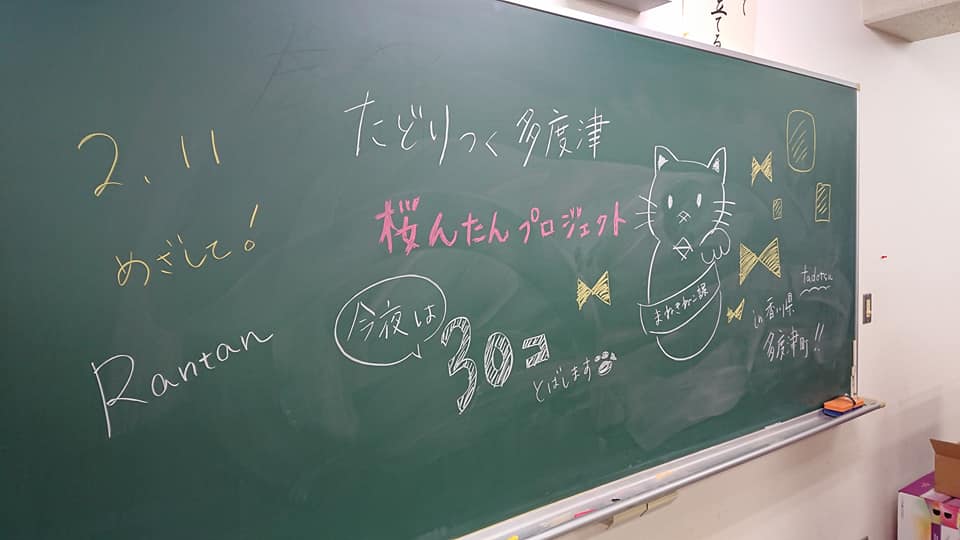 2.11
めざして!
Rantan
たどりつく多度津
桜んたんプロジェクト
今夜は
30コ
とばします
まねきねこ課
tadotsu
in 香川県
多度津町!!
立てる